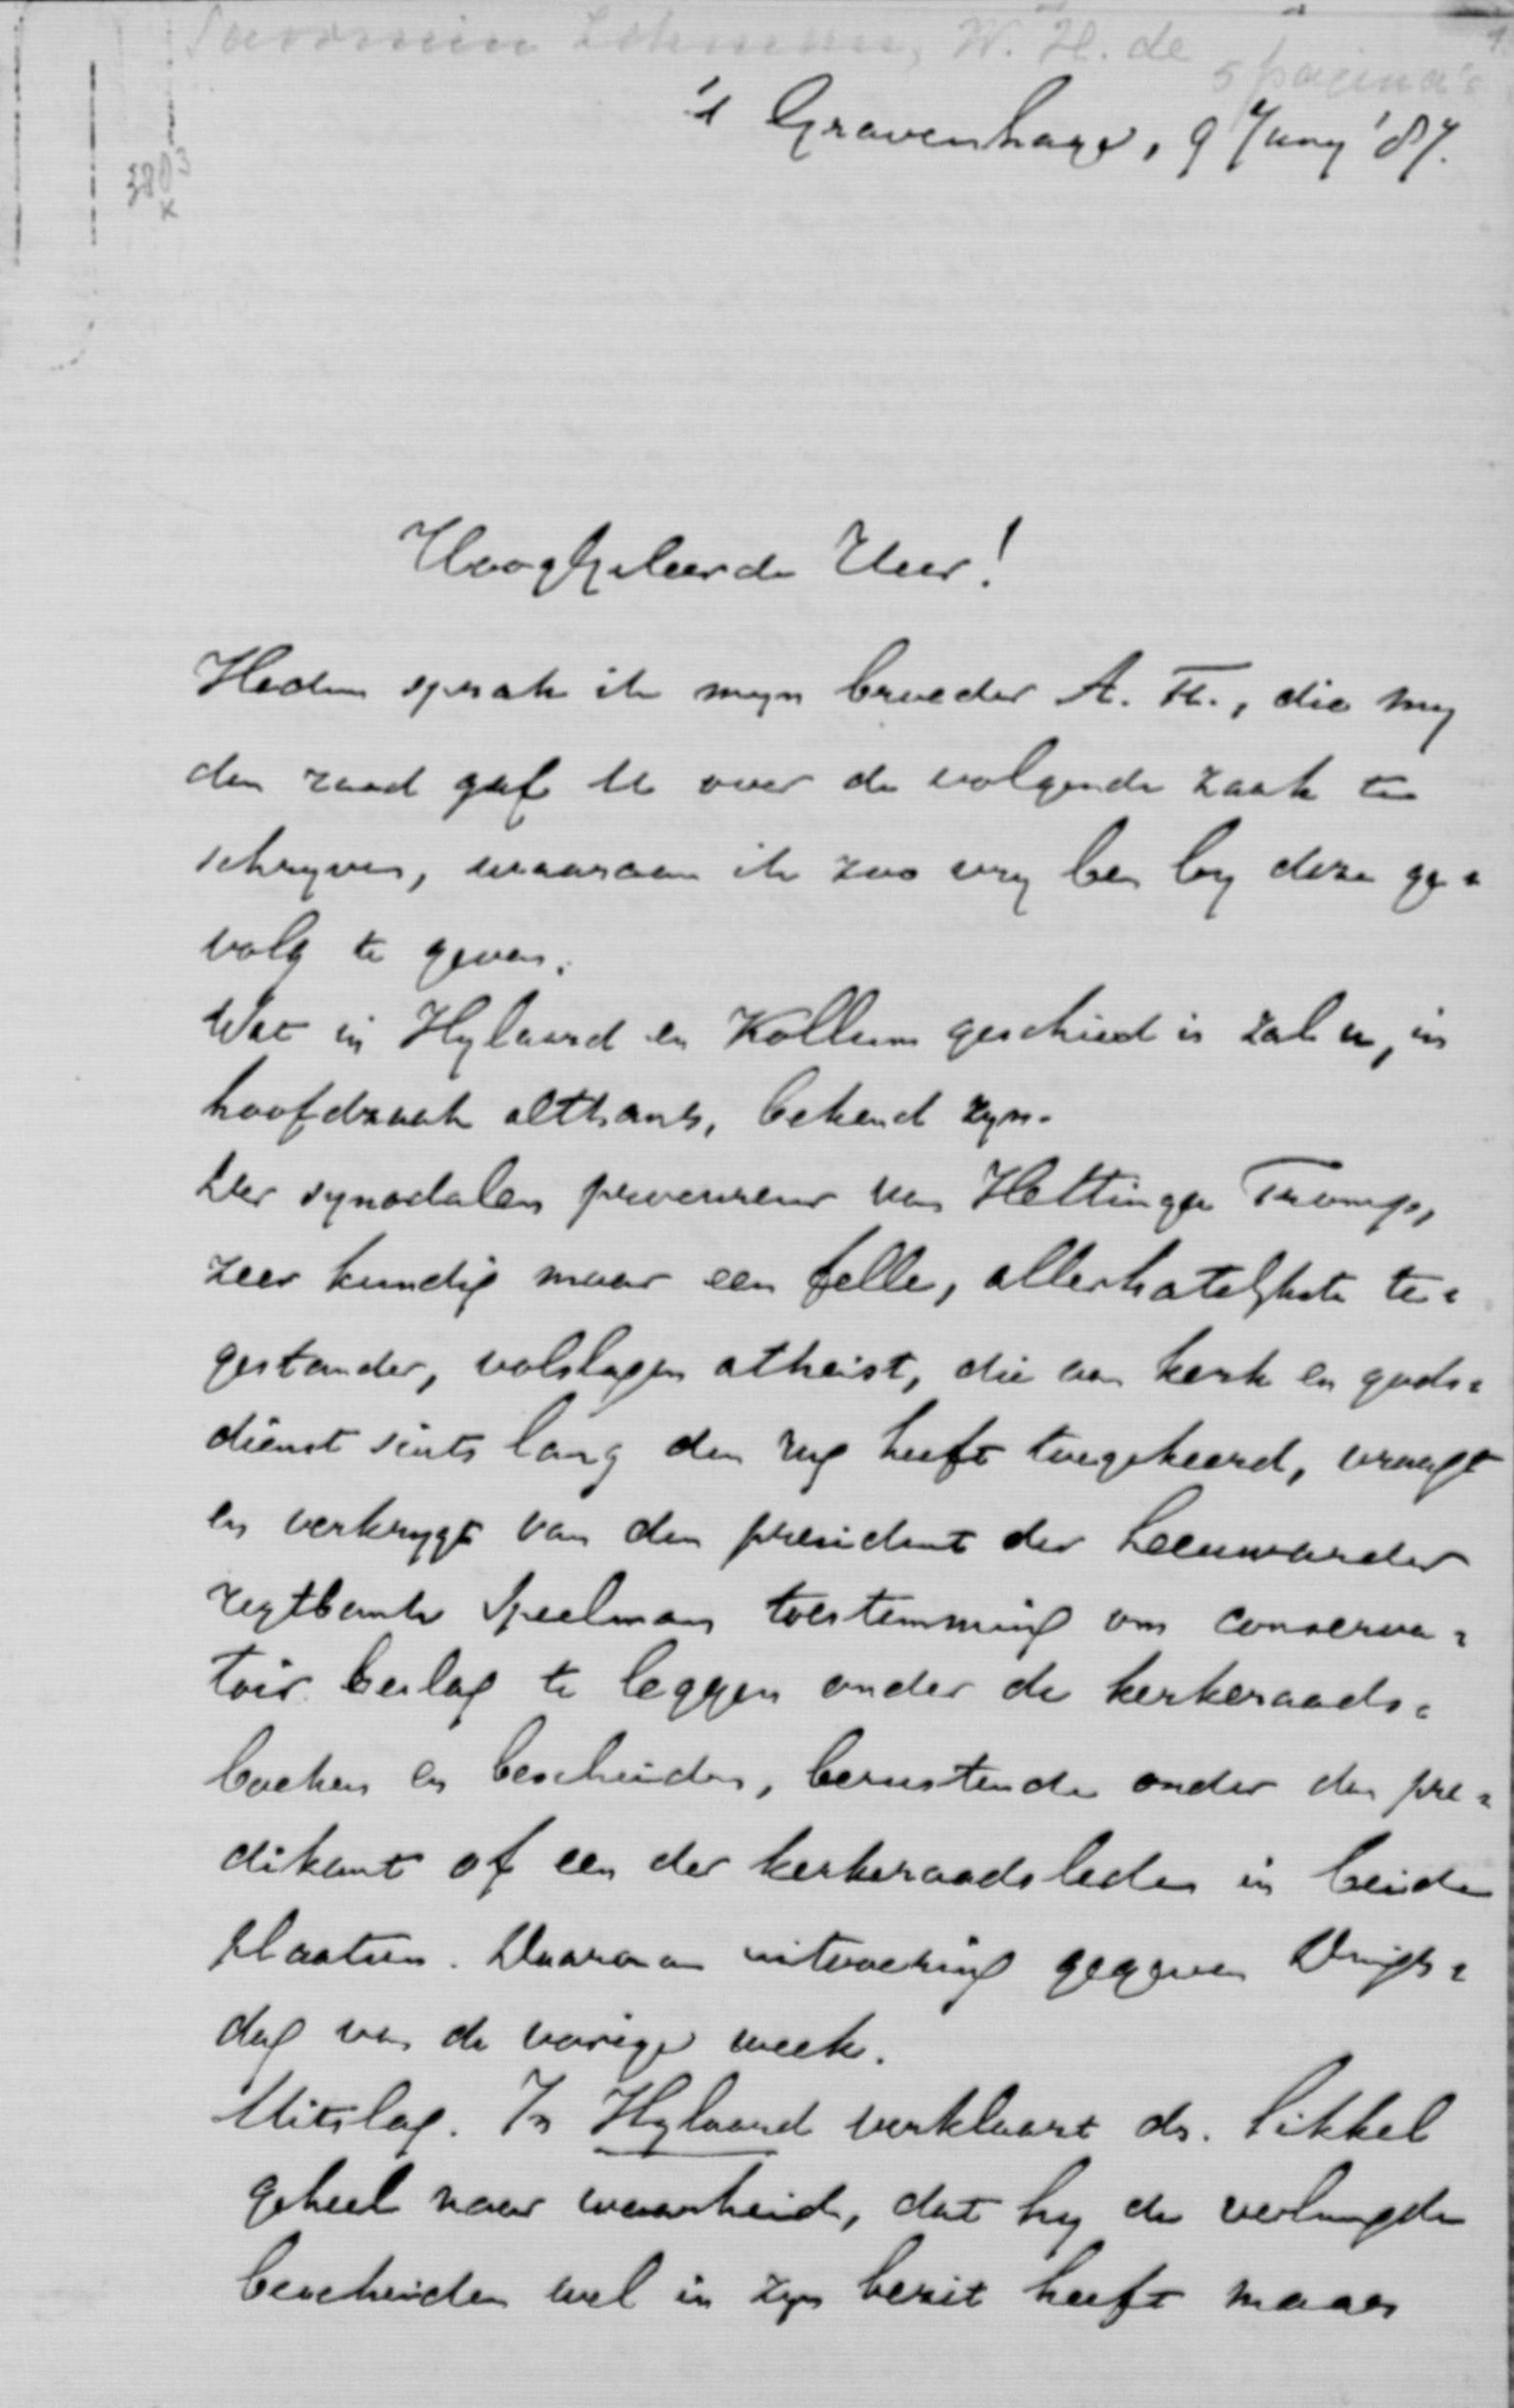 Savornin Lohman, W. H. de
5 pagina's
1.
's Gravenhage, 9 Juny '87.
3803
x
Hooggeleerde Heer!
Heden sprak ik myn broeder A. F., die my
den raad gaf U over de volgende zaak te
schryven, waaraan ik zoo vry ben by deze ge=
volg te geven.
Wat in Hylaard en Kollum geschied is zal u, in
hoofdzaak althans, bekend zyn.
Der synodalen procureur van Hettinga Tromp,
zeer kundig maar een felle, allerhatelykste te=
gestander, volslagen atheist, die aan kerk en gods=
dienst sints lang den rug heeft toegekeerd, vraagt
en verkrygt van den president der Leeuwarder
regtbank Speelman toestemming om conserva=
toir beslag te leggen onder de kerkeraads=
boeken en bescheiden, berustende onder den pre=
dikant of een der kerkeraadsleden in beide
plaatsen. Daaraan uitvoering gegeven Vrij=
dag van de vorige week.
Uitslag. In Hylaard verklaart ds. Sikkel
geheel naar waarheid, dat hy de verlangde
bescheiden wel in zyn bezit heeft maar